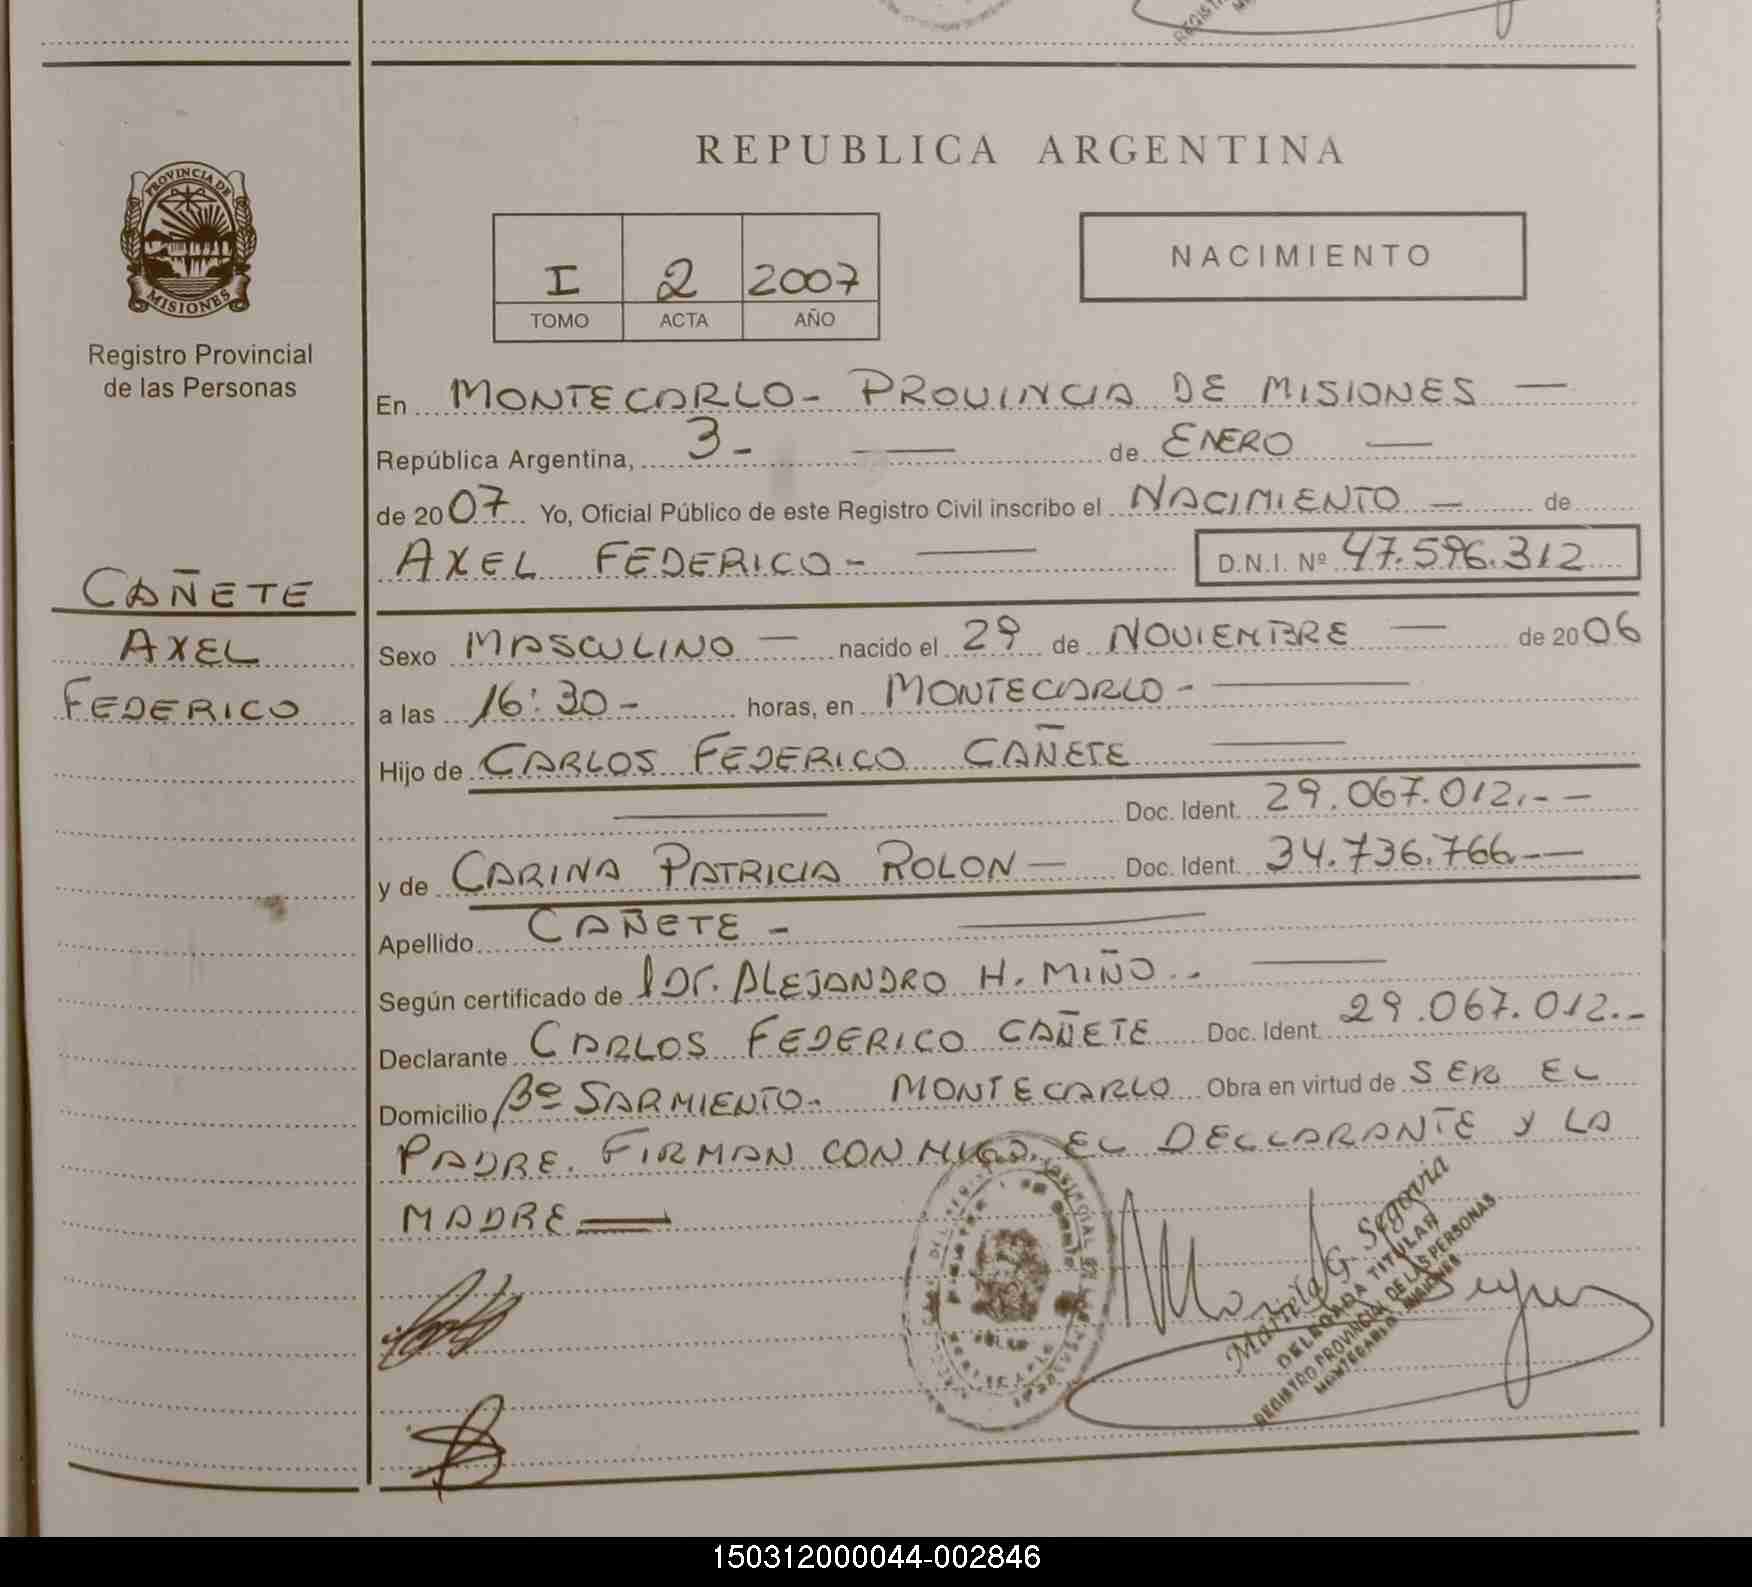 REPUBLICA ARGENTINA
PROVINCIA DE
MISIONES
Registro Provincial
de las Personas
I 2 2007
TOMO ACTA AÑO
NACIMIENTO
En MONTECARLO - PROVINCIA DE MISIONES —
República Argentina, 3 - — de ENERO —
de 2007 Yo, Oficial Público de este Registro Civil inscribo el NACIMIENTO — de
AXEL FEDERICO - — D.N.I. Nº 47.596.312
CAÑETE
AXEL
FEDERICO
Sexo MASCULINO — nacido el 29 de NOVIEMBRE — de 2006
a las 16:30 - horas, en MONTECARLO - —
Hijo de CARLOS FEDERICO CAÑETE —
— Doc. Ident. 29.067.012.- —
y de CARINA PATRICIA ROLON — Doc. Ident. 34.736.766 - —
Apellido CAÑETE - —
Según certificado de Dr. ALEJANDRO H. MIÑO.- —
Declarante CARLOS FEDERICO CAÑETE Doc. Ident. 29.067.012.-
Domicilio Bº SARMIENTO. MONTECARLO Obra en virtud de SER EL
PADRE. FIRMAN CONMIGO, EL DECLARANTE Y LA
MADRE
Mariela G. Segovia
DELEGADA TITULAR
REGISTRO PROVINCIAL DE LAS PERSONAS
MONTECARLO MISIONES
150312000044-002846